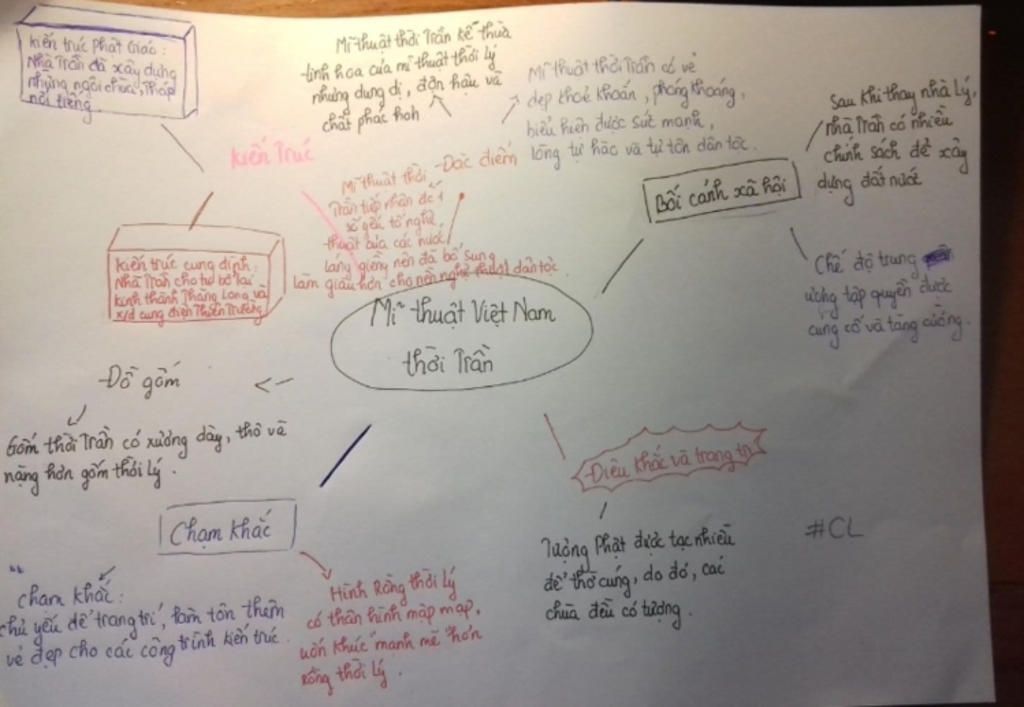 Kiến trúc Phật Giáo:
Nhà Trần đã xây dựng
những ngôi chùa, tháp
nổi tiếng
Mĩ thuật thời Trần kế thừa
tinh hoa của mĩ thuật thời Lý
nhưng dung dị, đôn hậu và
chất phác hơn
Mĩ thuật thời Trần có vẻ
đẹp khoẻ khoắn, phóng khoáng,
biểu hiện được sức mạnh,
lòng tự hào và tự tôn dân tộc.
Sau khi thay nhà Lý,
nhà Trần có nhiều
chính sách để xây
dựng đất nước
Kiến Trúc
Đặc điểm
Mĩ thuật thời
Trần tiếp nhận đc 1
số yếu tố nghệ
thuật của các nước
láng giềng nên đã bổ sung
làm giàu hơn cho nền nghệ thuật dân tộc.
Bối cảnh xã hội
Chế độ trung
ương tập quyền được
cung cố và tăng cường.
Kiến trúc cung đình:
Nhà Trần cho tu bổ lại
kinh thành Thăng Long và
x/d cung điện Thiên Trường
Mĩ thuật Việt Nam
thời Trần
Đồ gốm
Gốm thời Trần có xương dày, thô và
nặng hơn gốm thời Lý.
Điêu khắc và trang trí
Chạm khắc
Tượng Phật được tạc nhiều
để thờ cúng, do đó, các
chùa đều có tượng.
#CL
Chạm khắc:
chủ yếu để trang trí, làm tôn thêm
vẻ đẹp cho các công trình kiến trúc.
Hình Rồng thời Lý
có thân hình mập mạp,
uốn khúc mạnh mẽ hơn
rồng thời Lý.